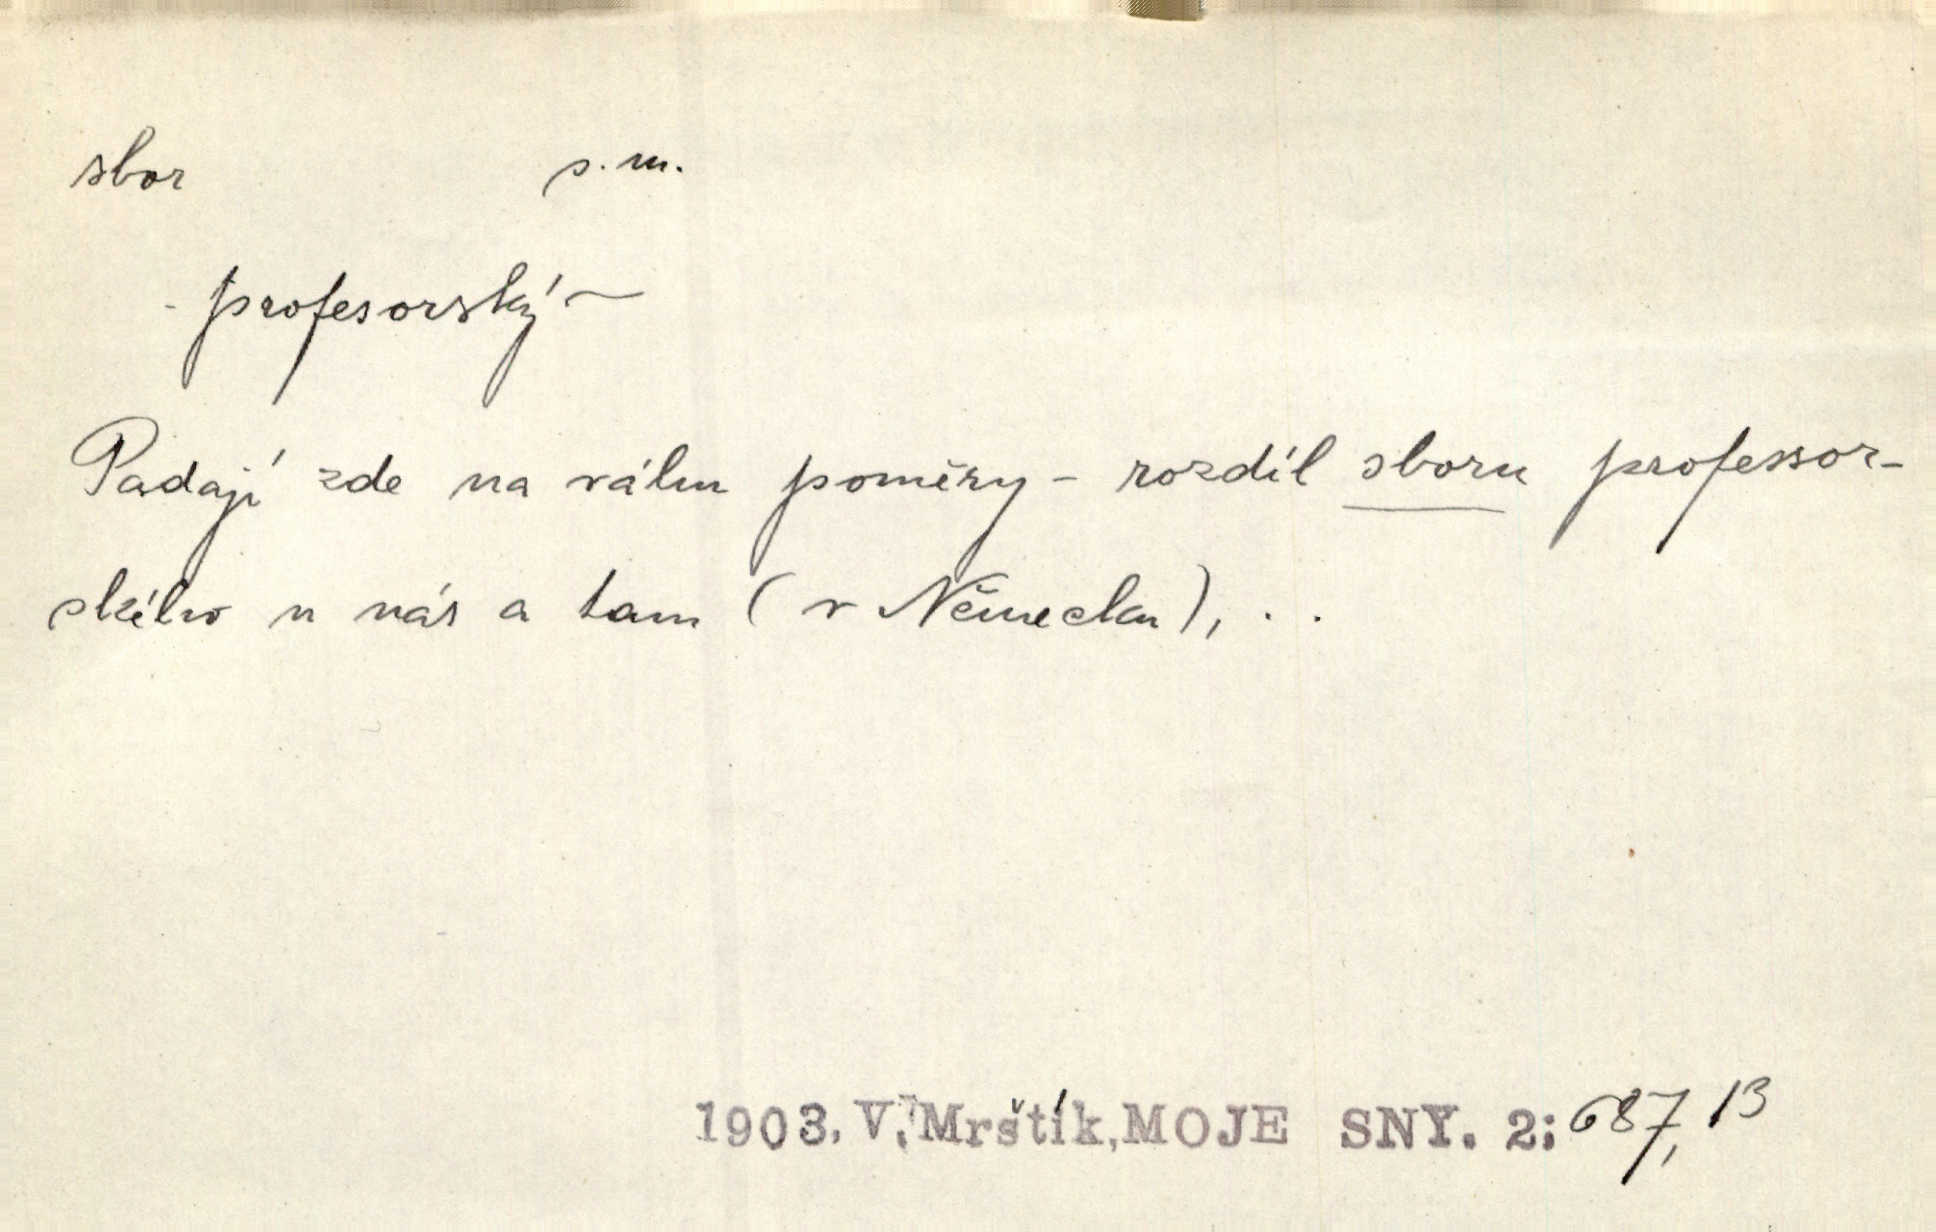 sbor s. m.
- profesorský ~
Padají zde na váhu poměry - rozdíl sboru professor-
ského u nás a tam (v Německu), . .
1903. V. Mrštík, MOJE SNY. 2; 687, 13